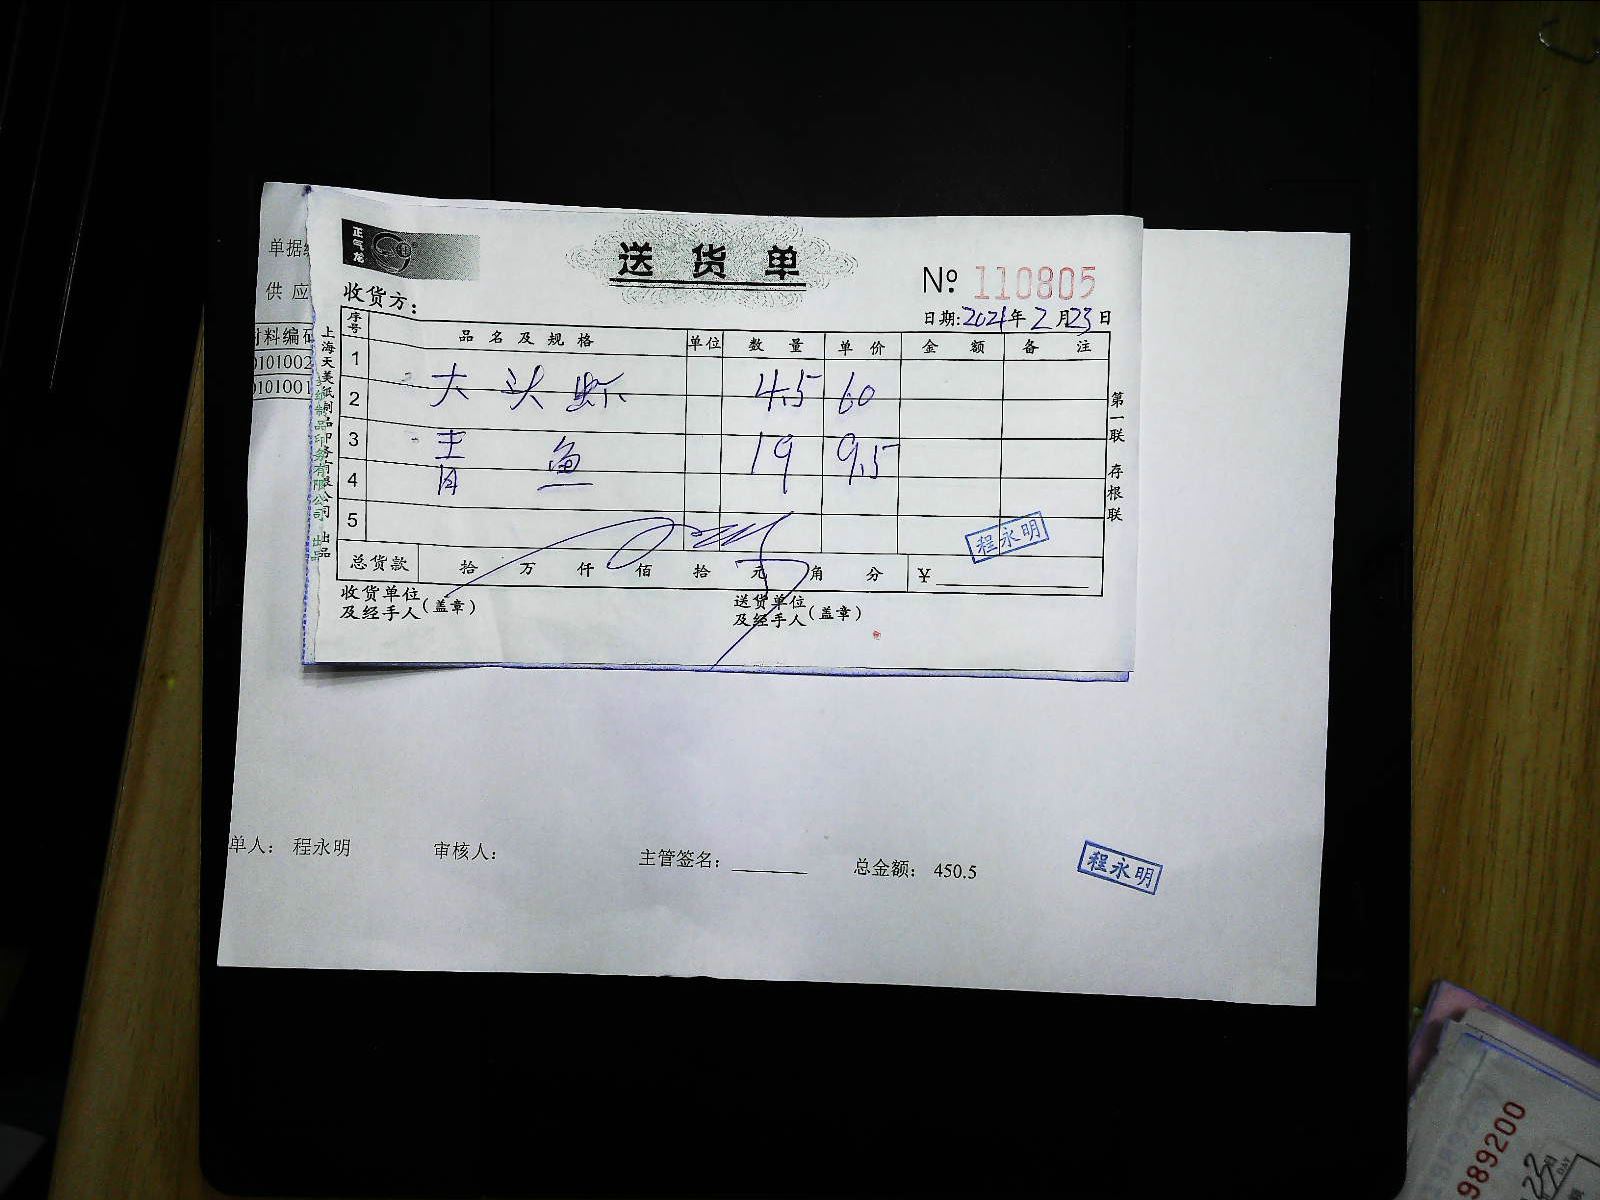 正气龙
送货单
№ 110805
收货方：
日期：2021年2月23日
序号 品名及规格 单位 数量 单价 金额 备注
1
2 大头虾 4.5 60
3 青鱼 19 9.5
4
5
总货款 拾 万 仟 佰 拾 元 角 分 ¥
收货单位及经手人（盖章）
送货单位及经手人（盖章）
程永明
第一联 存根联
上海天美纸制品印务有限公司 出品
单据
供应
材料编码
0101002
0101001
单人： 程永明 审核人： 主管签名： 总金额： 450.5
程永明
989200